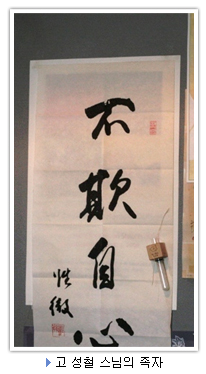 不欺自心
性徹
고 성철 스님의 족자